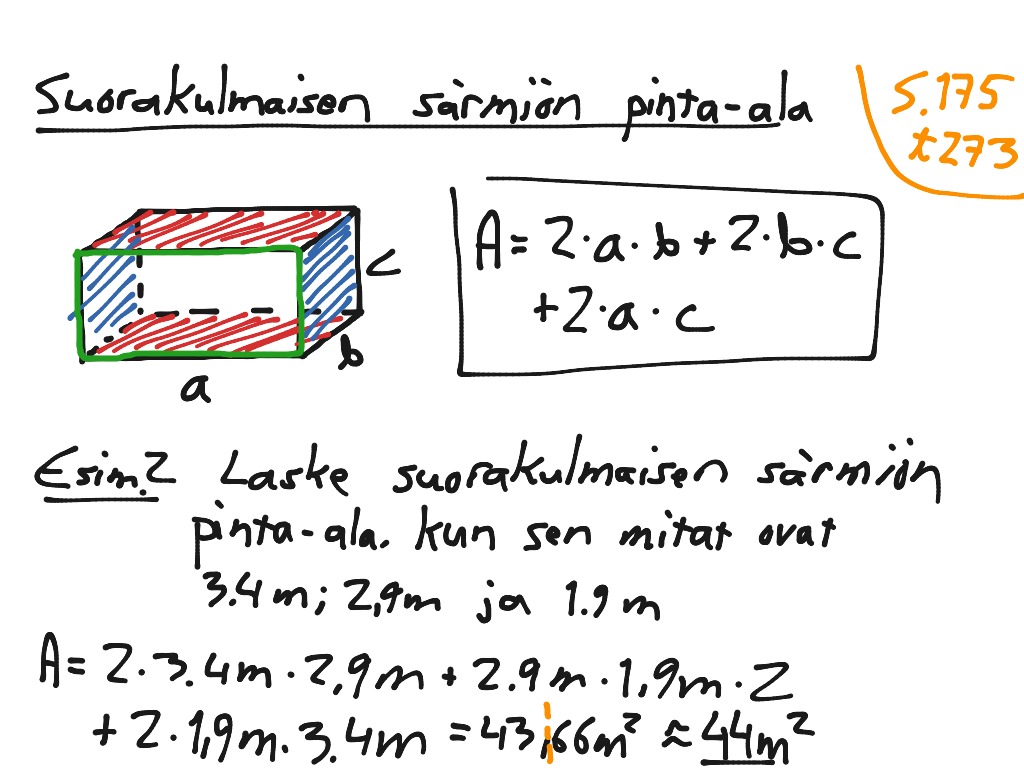 Suorakulmaisen särmiön pinta-ala
S.175
t273
A = 2·a·b + 2·b·c
+2·a·c
c
b
a
Esim.2 Laske suorakulmaisen särmiön
pinta-ala. kun sen mitat ovat
3.4 m; 2,9m ja 1.9 m
A = 2·3.4m·2,9m + 2.9m·1,9m·2
+ 2·1,9m·3.4m = 43,66m² ≈ 44m²